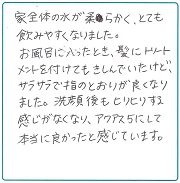 家全体の水が柔らかく、とても
飲みやすくなりました。
お風呂に入ったとき、髪にトリート
メントを付けてもきしんでいたけど、
サラサラで指のとおりが良くなり
ました。洗顔後もヒリヒリする
感じがなくなり、アクアス5にして
本当に良かったと感じています。